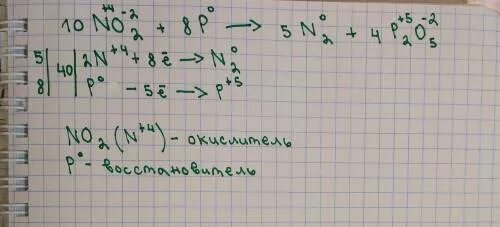 10 N⁺⁴O₂⁻² + 8 P⁰ ⟶ 5 N₂⁰ + 4 P₂⁺⁵O₅⁻²
5 | 40 | 2N⁺⁴ + 8ē ⟶ N₂⁰
8 | P⁰ - 5ē ⟶ P⁺⁵
NO₂ (N⁺⁴) - окислитель
P⁰ - восстановитель